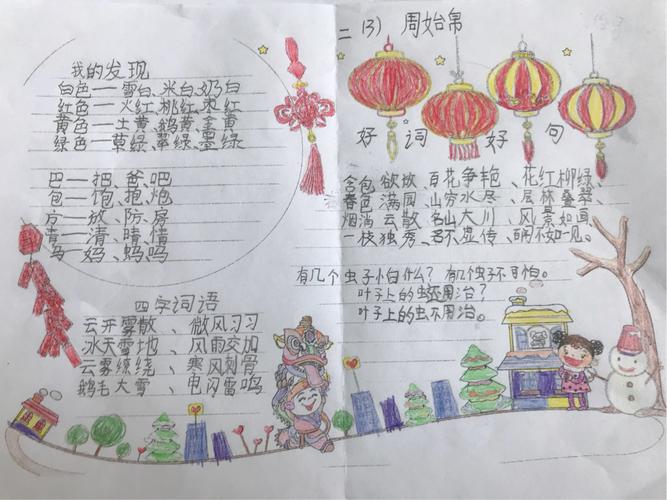 我的发现
白色一雪白、米白、奶白
红色一火红、桃红、枣红
黄色一土黄、鹅黄、金黄
绿色一草绿、翠绿、墨绿
巴一把、爸、吧
包一饱、抱、炮
方一放、防、房
青一清、晴、情
马一妈、蚂、吗
四字词语
云开雾散、微风习习
冰天雪地、风雨交加
云雾缭绕、寒风刺骨
鹅毛大雪、电闪雷鸣
二(3) 周始帛
好词好句
含包欲放、百花争艳、花红柳绿、
春色满园、山穷水尽、层林叠翠
烟消云散、名山大川、风景如画
一枝独秀、名不虚传、百闻不如一见。
有几个虫子怕什么？有几个虫子不可怕。
叶子上的虫还用治？
叶子上的虫不用治。